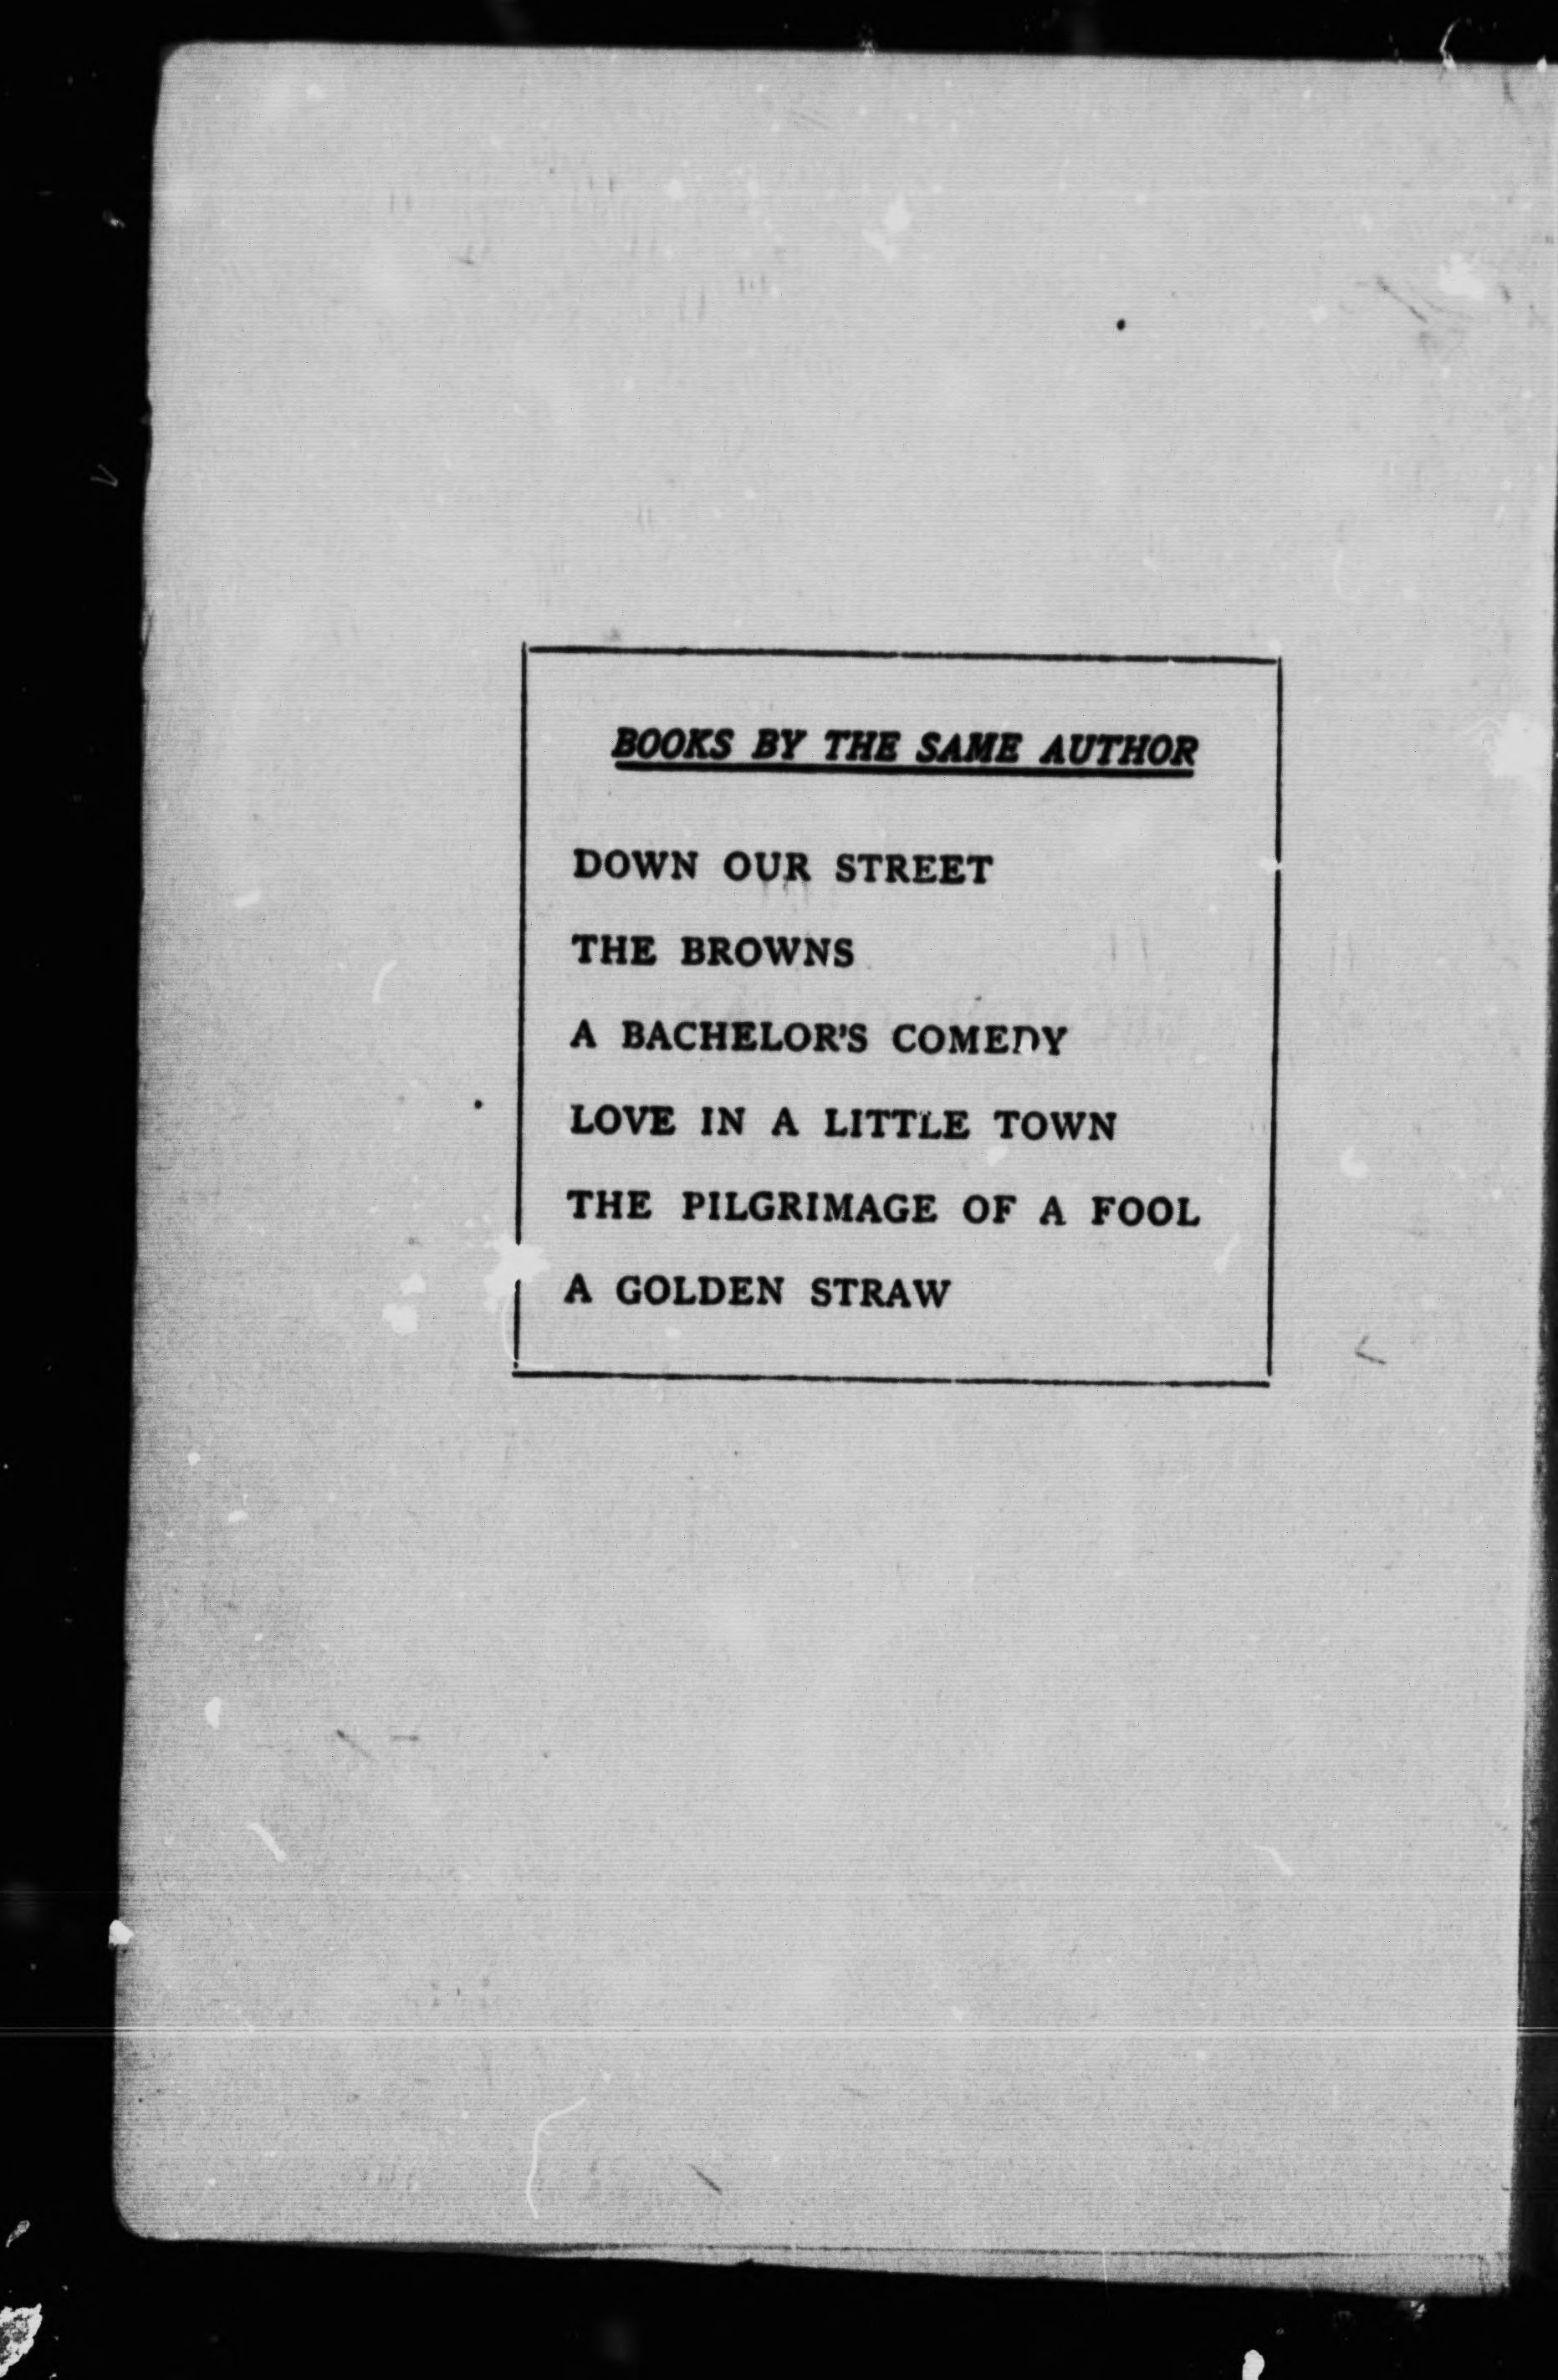 BOOKS BY THE SAME AUTHOR
DOWN OUR STREET
THE BROWNS
A BACHELOR'S COMEDY
LOVE IN A LITTLE TOWN
THE PILGRIMAGE OF A FOOL
A GOLDEN STRAW